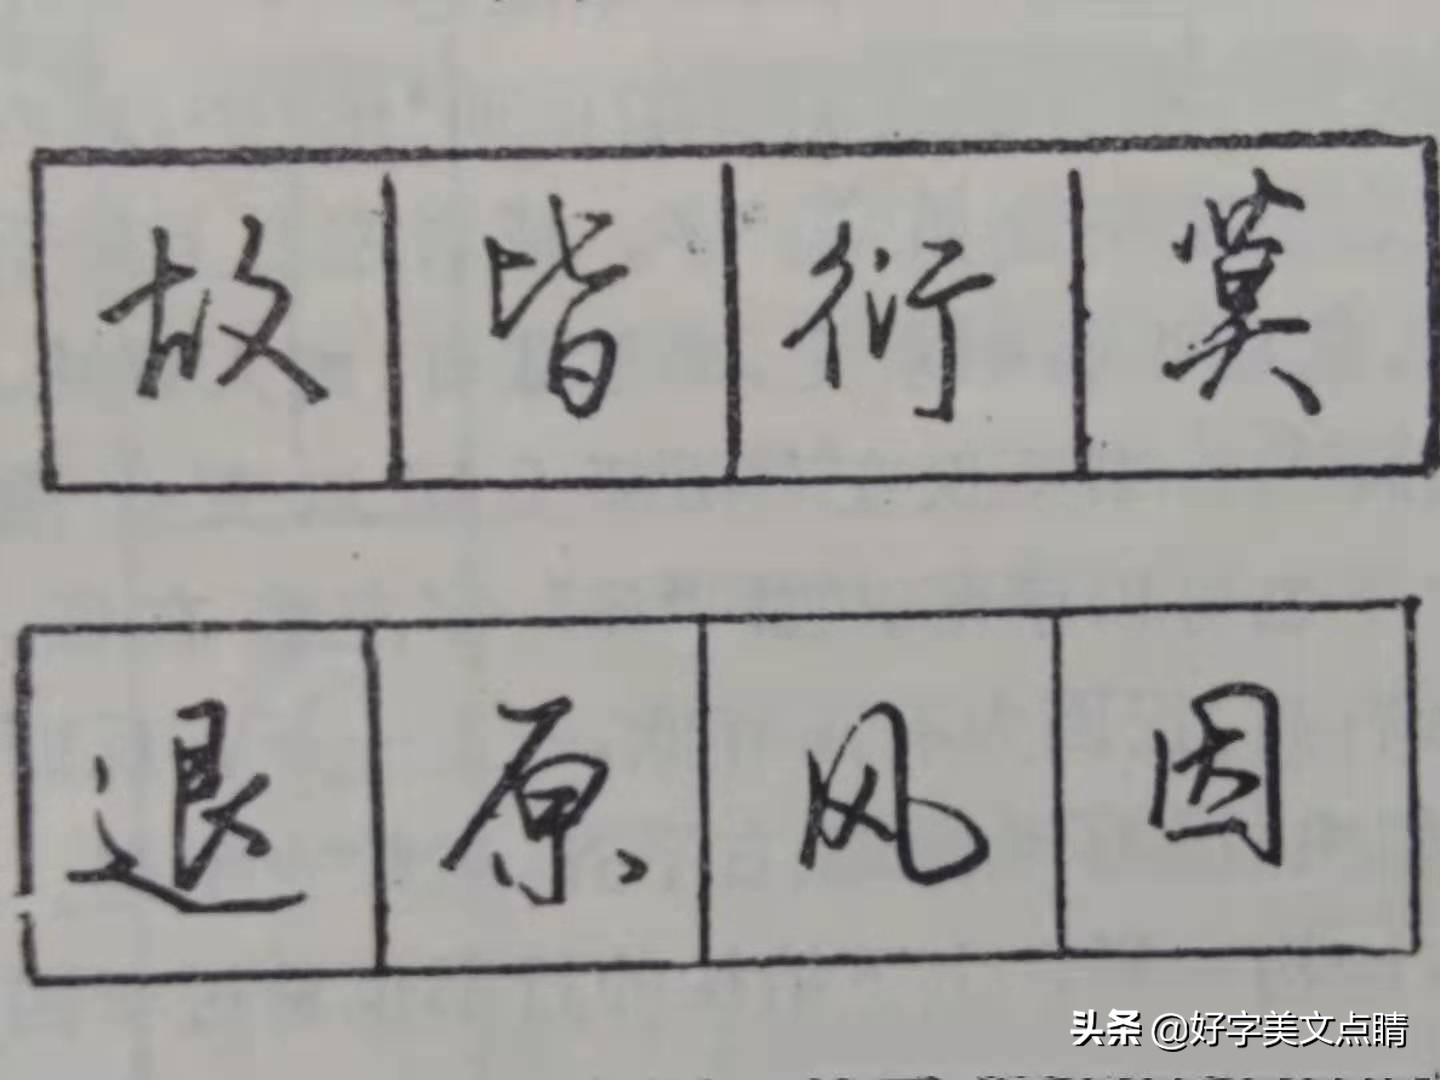 故皆衍莫
退原风因
头条 @好字美文点睛